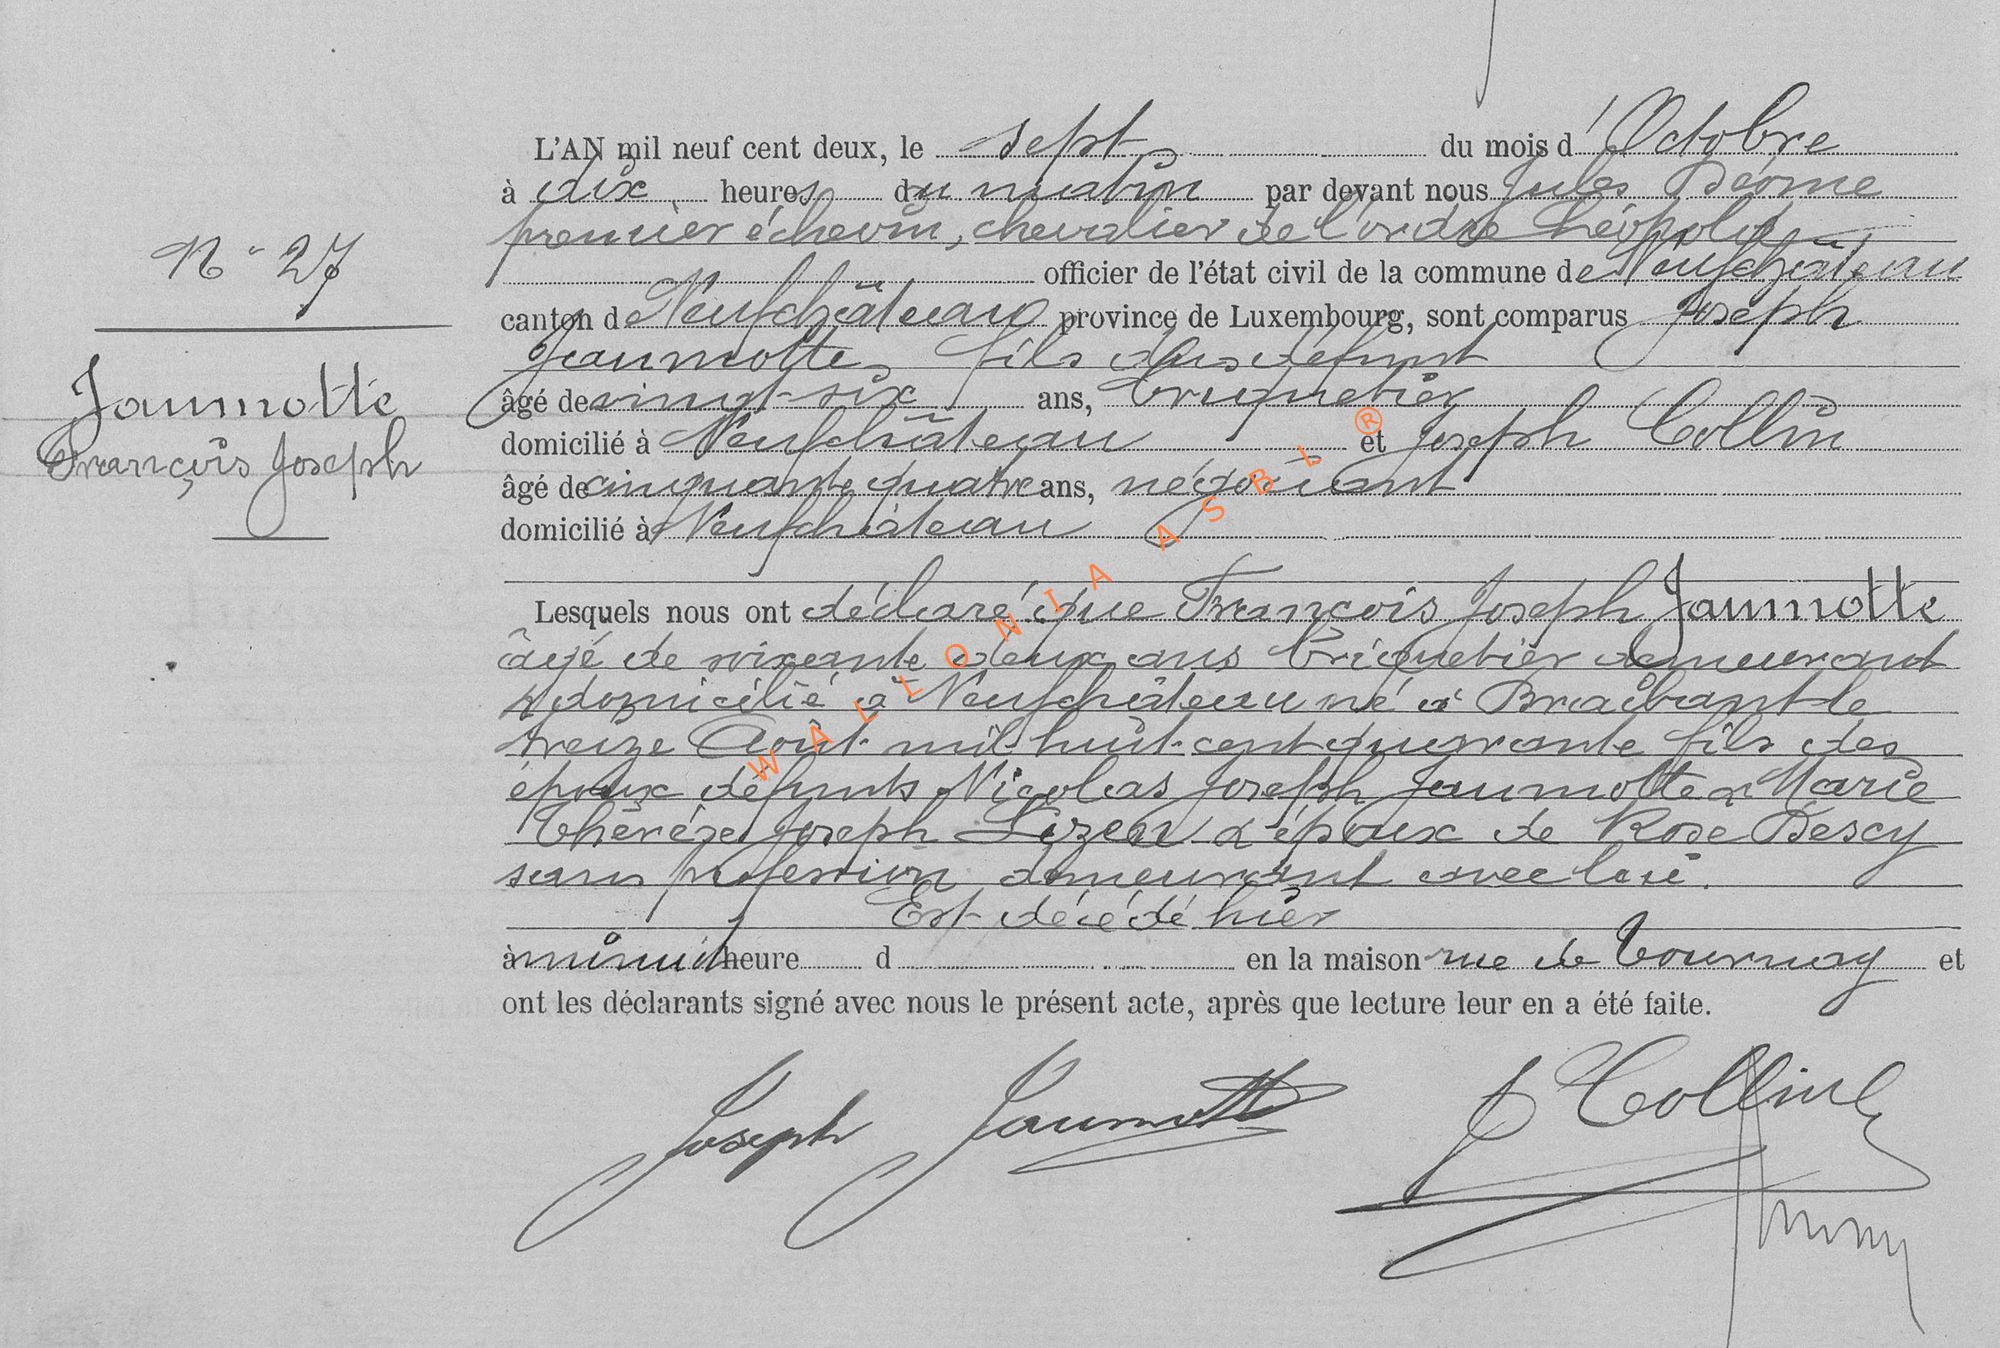 L'AN mil neuf cent deux, le sept du mois d'Octobre
à dix heures du matin par devant nous Jules
premier échevin, chevalier de l'ordre Léopold
officier de l'état civil de la commune de Neufchâteau
canton de Neufchâteau province de Luxembourg, sont comparus Joseph
Jaumotte, fils du défunt
âgé de vingt-six ans, briquetier
domicilié à Neufchâteau et Joseph Collin
âgé de cinquante quatre ans, négociant
domicilié à Neufchâteau
N° 27
Jaumotte
François Joseph
Lesquels nous ont déclaré que François Joseph Jaumotte
âgé de soixante deux ans briquetier demeurant
& domicilié à Neufchâteau né à Braibant le
treize Août mil huit cent quarante fils des
époux défunts Nicolas Joseph Jaumotte & Marie
Thérèse Joseph Lizen & époux de Rose Descy
sans profession demeurant avec lui.
Est décédé hier
à minuit heure d en la maison rue de Tournay et
ont les déclarants signé avec nous le présent acte, après que lecture leur en a été faite.
Joseph Jaumotte J Collin
WALLONIA ASBL ®